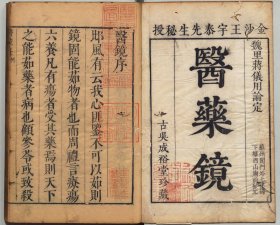 金沙王宇泰先生秘授
魏里蔣儀用論定
醫藥鏡
古吳成裕堂珍藏
醫鏡序
邶風有云我心匪鑒不可以茹則
鏡固能茹物者也而周禮言療瘍
六養凡有瘍者受其藥焉則天下
之能茹藥者病也顧參苓或致殺